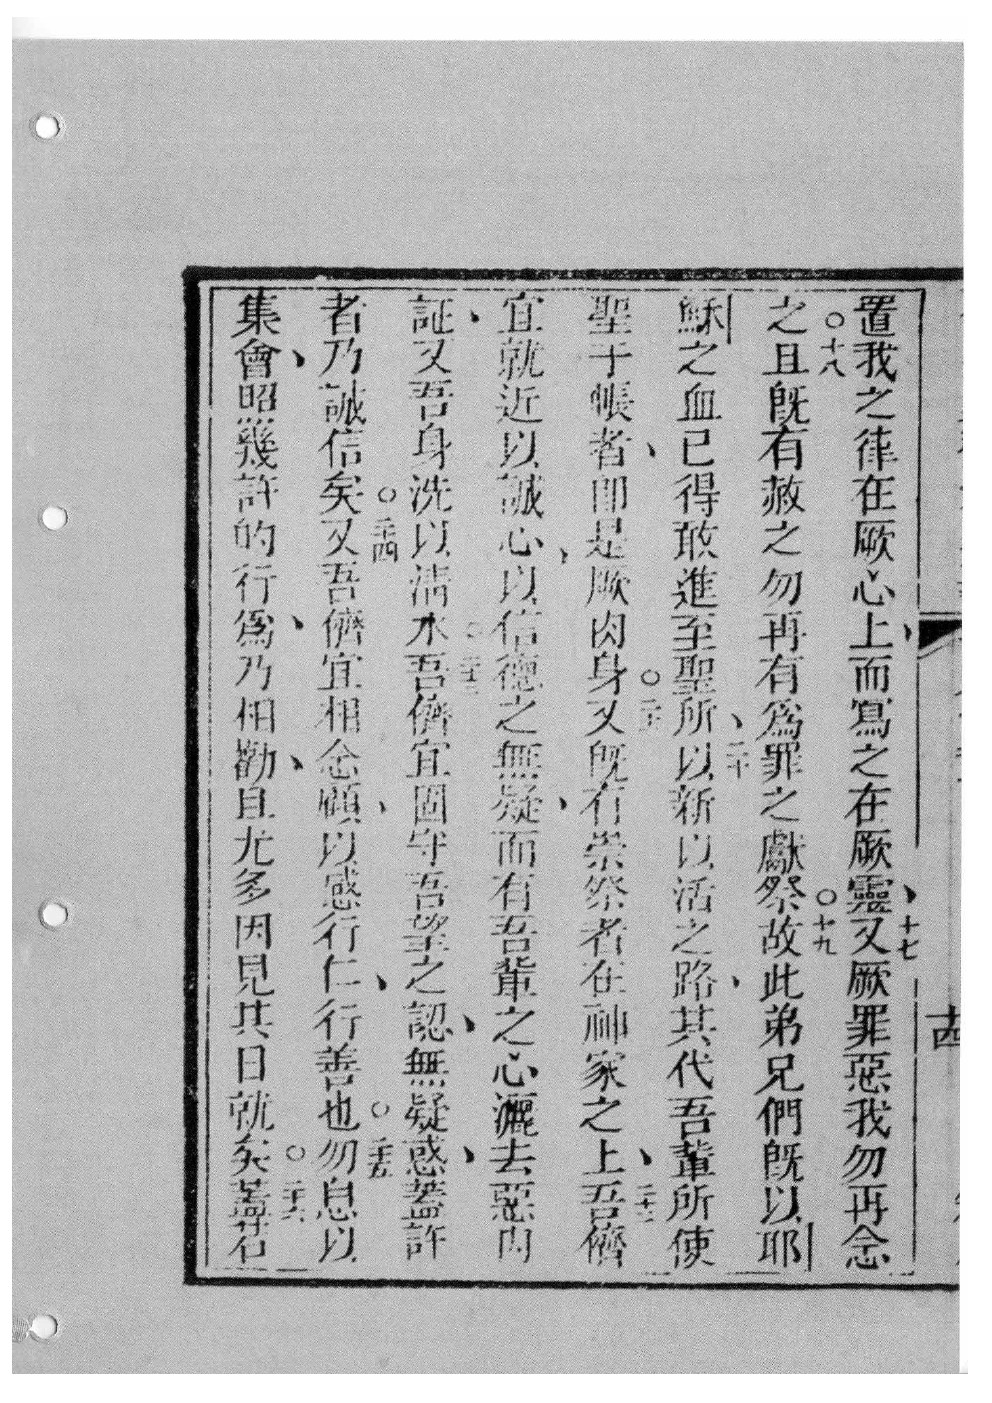 置我之律在厥心上、而寫之在厥靈、十七又厥罪惡我勿再念
之○十八且旣有赦之勿再有爲罪之獻祭○十九故此弟兄們旣以耶
穌之血已得敢進至聖所、二十以新以活之路、其代吾輩所使
聖于帳者、即是厥肉身○二十一又旣有崇祭者在神家之上、二十二吾儕
宜就近以誠心、以信德之無疑、而有吾輩之心灑去惡內
証、又吾身洗以清水○二十三吾儕宜固守吾望之認、無疑惑、蓋許
者乃誠信矣○二十四又吾儕宜相念顧、以感行仁、行善也○二十五勿息以
集會、昭幾許的行爲、乃相勸、且尤多因見其日就矣○二十六蓋若
十四